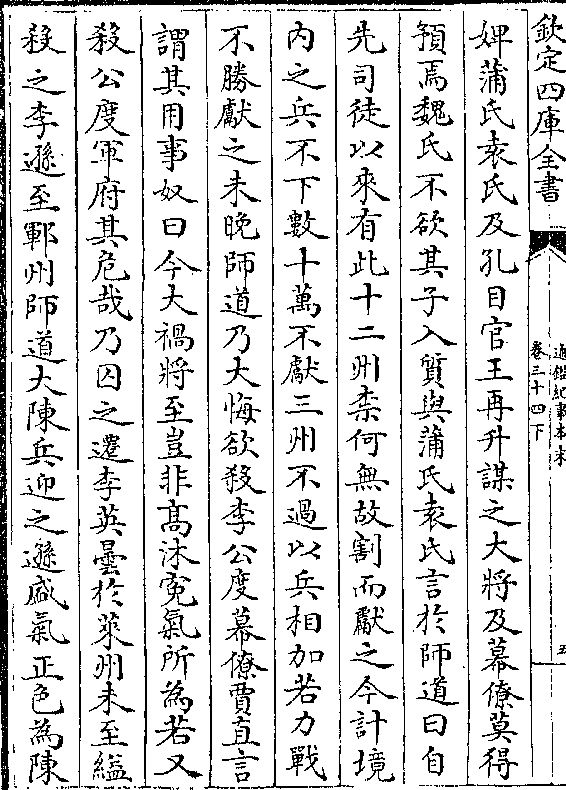 欽定四庫全書
通鑑紀事本末
卷三十四下
五
婢蒲氏袁氏及孔目官王再升謀之大將及幕僚莫得
預焉魏氏不欲其子入質與蒲氏袁氏言於師道曰自
先司徒以來有此十二州柰何無故割而獻之今計境
内之兵不下數十萬不獻三州不過以兵相加若力戰
不勝獻之未晚師道乃大悔欲殺李公度幕僚賈直言
謂其用事奴曰今大禍將至豈非髙沐寃氣所為若又
殺公度軍府其危哉乃囚之遷李英曇於萊州未至縊
殺之李遜至鄆州師道大陳兵迎之遜盛氣正色為陳